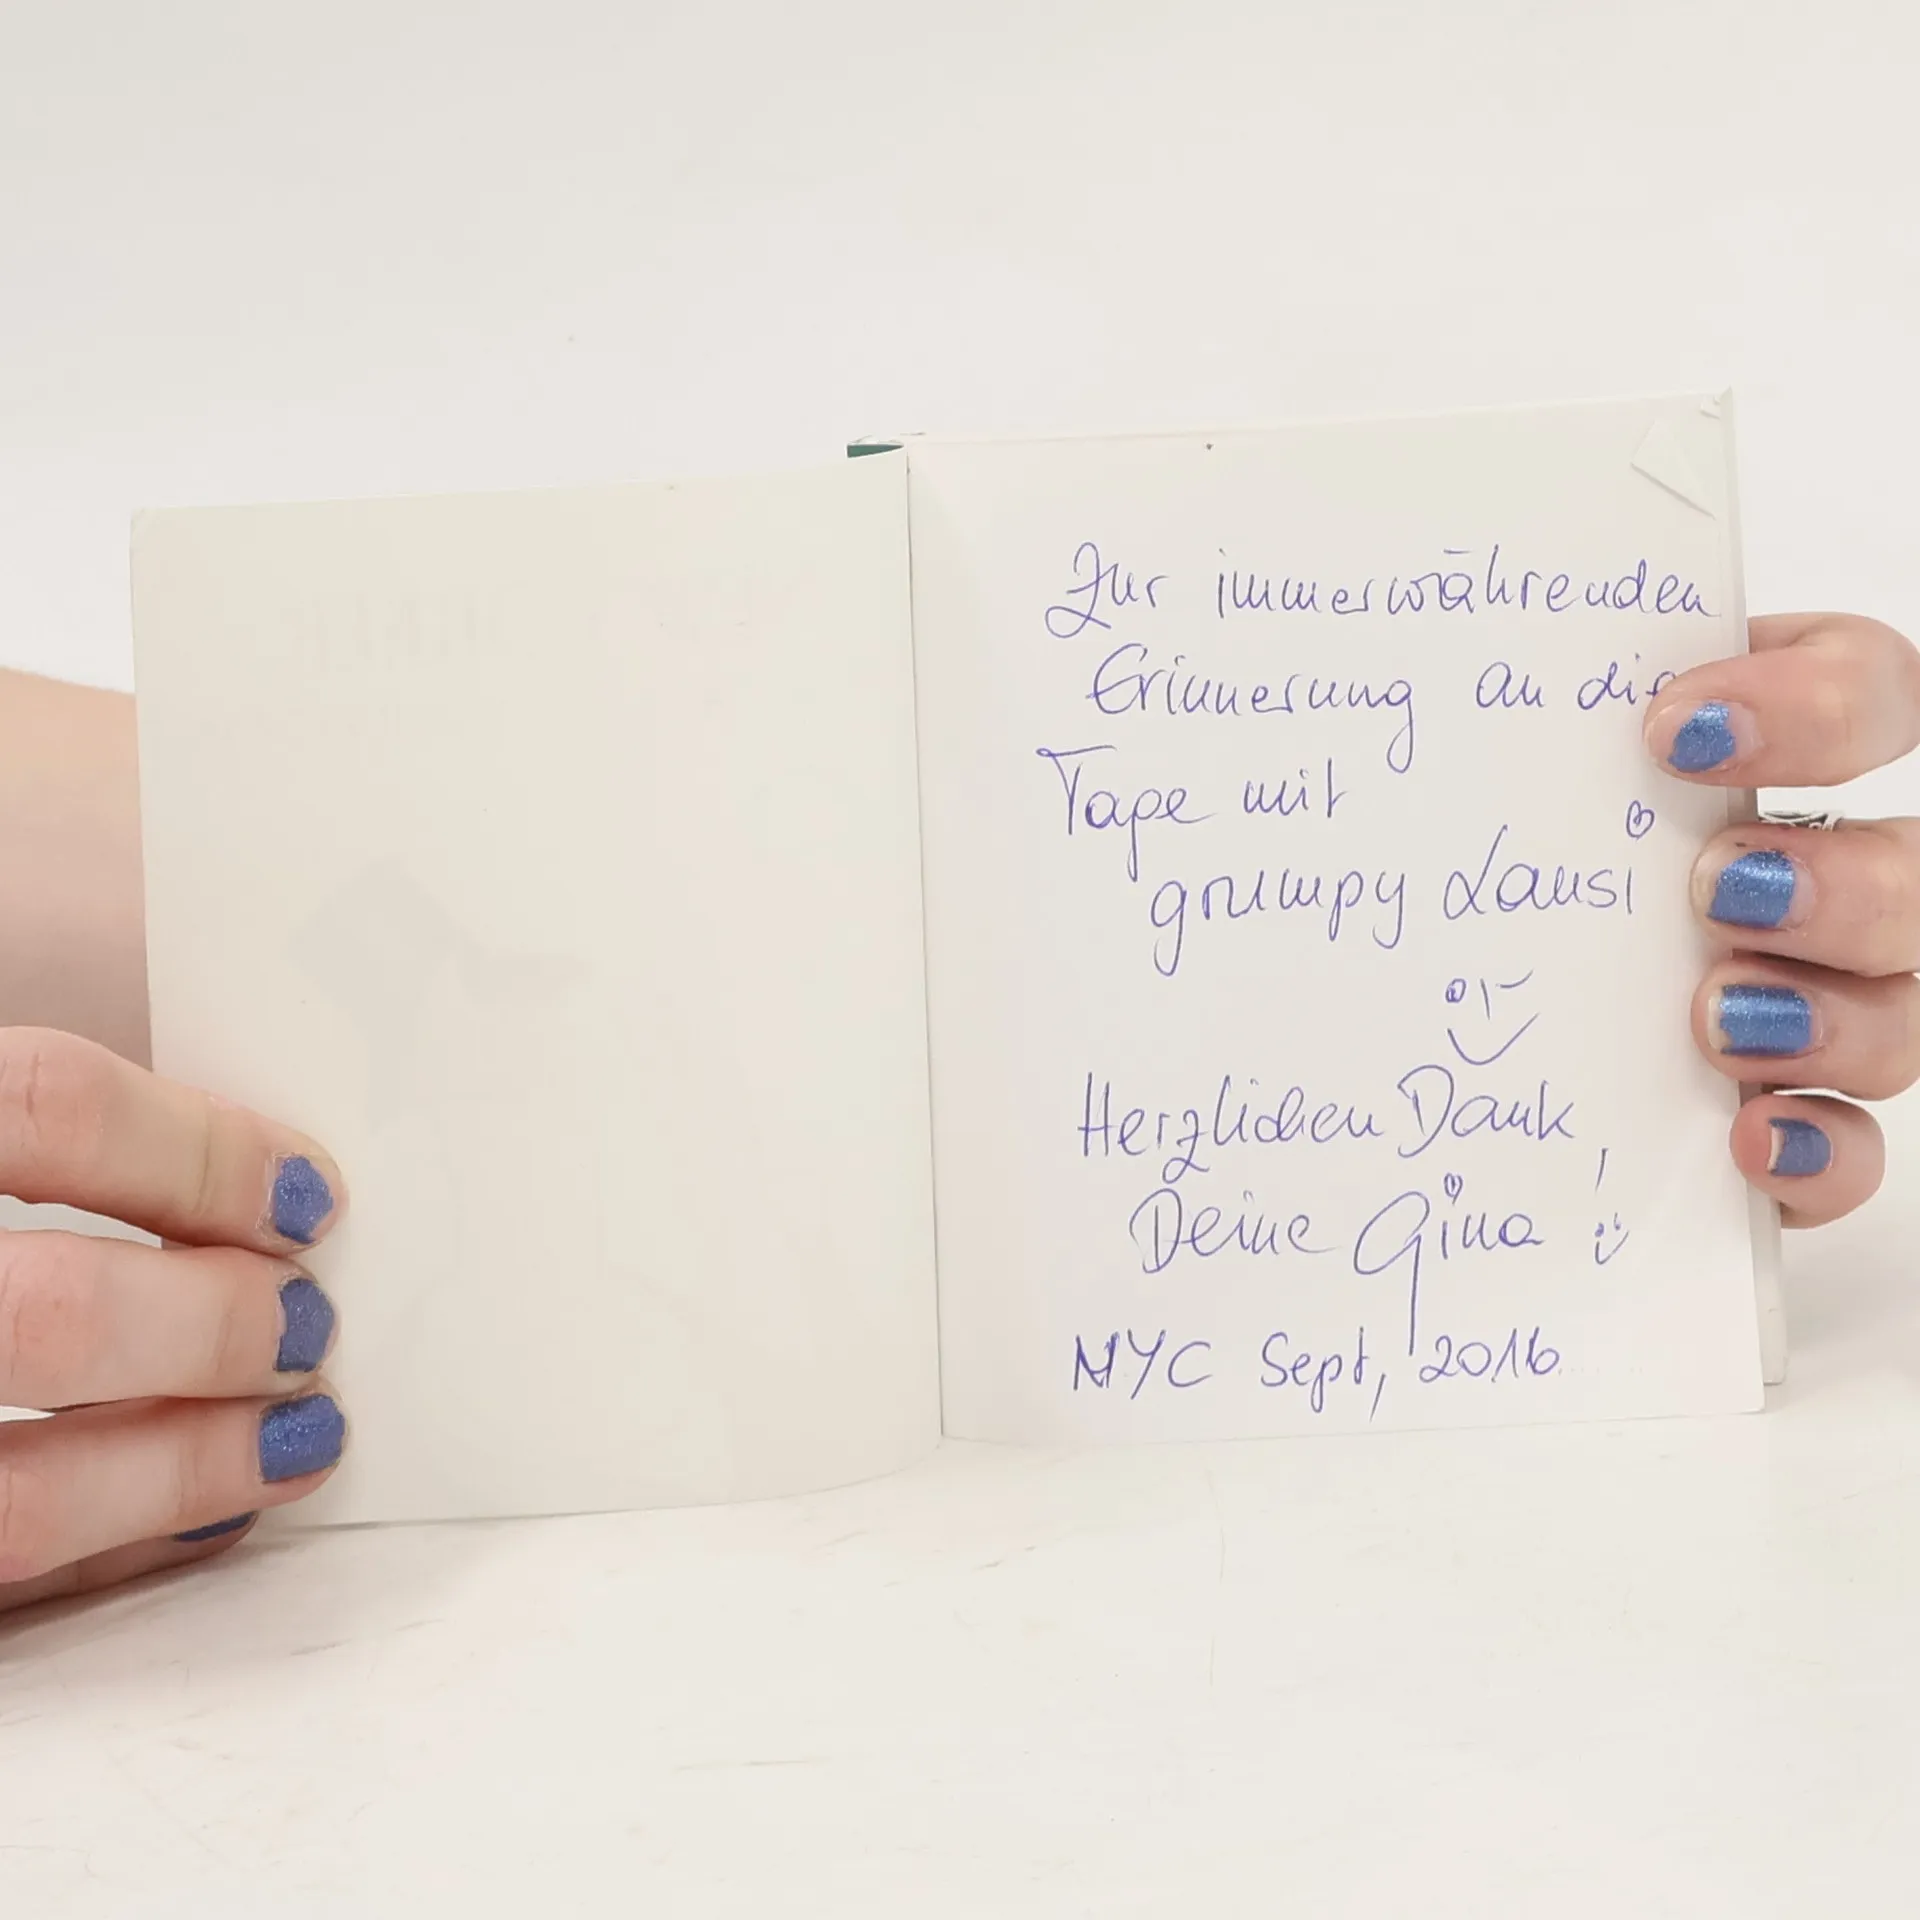 Zur immerwährenden
Erinnerung an die
Tage mit
grumpy Lausi
Herzlichen Dank,
Deine Gina!
NYC Sept, 2016